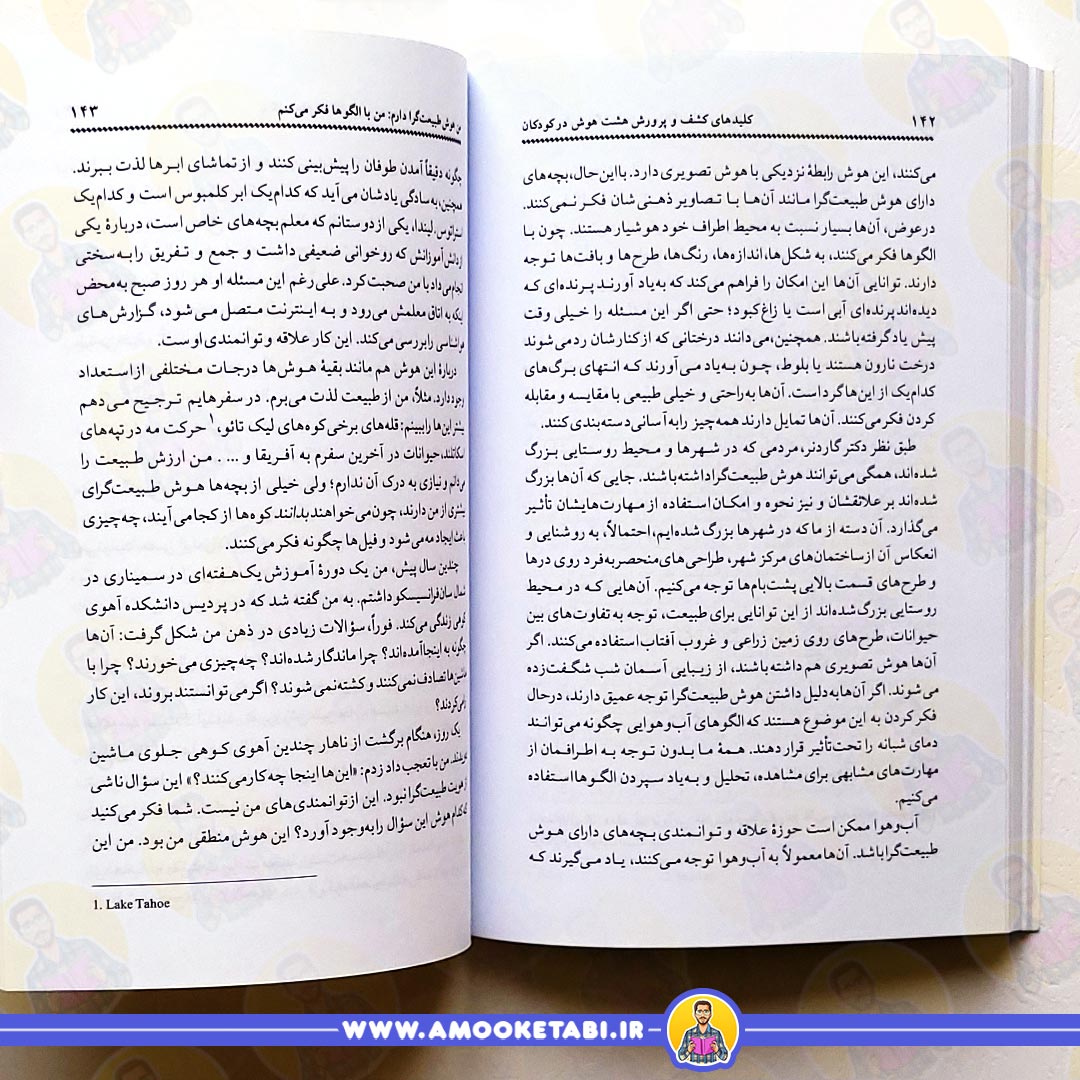 ۱۴۲
کلیدهای کشف و پرورش هشت هوش در کودکان
می‌کنند، این هوش رابطهٔ نزدیکی با هوش تصویری دارد. بااین‌حال، بچه‌های
دارای هوش طبیعت‌گرا مانند آن‌ها با تصاویر ذهنی‌شان فکر نمی‌کنند.
درعوض، آن‌ها بسیار نسبت به محیط اطراف خود هوشیار هستند. چون با
الگوها فکر می‌کنند، به شکل‌ها، اندازه‌ها، رنگ‌ها، طرح‌ها و بافت‌ها توجه
دارند. توانایی آن‌ها این امکان را فراهم می‌کند که به‌یاد آورند پرنده‌ای که
دیده‌اند پرنده‌ای آبی است یا زاغ کبود؛ حتی اگر این مسئله را خیلی وقت
پیش یاد گرفته باشند. همچنین، می‌دانند درختانی که از کنارشان رد می‌شوند
درخت نارون هستند یا بلوط، چون به‌یاد می‌آورند که انتهای برگ‌های
کدام‌یک از این‌ها گرد است. آن‌ها به‌راحتی و خیلی طبیعی با مقایسه و مقابله
کردن فکر می‌کنند. آن‌ها تمایل دارند همه‌چیز را به آسانی دسته‌بندی کنند.
طبق نظر دکتر گاردنر، مردمی که در شهرها و محیط روستایی بزرگ
شده‌اند، همگی می‌توانند هوش طبیعت‌گرا داشته باشند. جایی که آن‌ها بزرگ
شده‌اند بر علائقشان و نیز نحوه و امکان استفاده از مهارت‌هایشان تأثیر
می‌گذارد. آن دسته از ما که در شهرها بزرگ شده‌ایم، احتمالاً، به روشنایی و
انعکاس آن از ساختمان‌های مرکز شهر، طراحی‌های منحصربه‌فرد روی درها
و طرح‌های قسمت بالایی پشت‌بام‌ها توجه می‌کنیم. آن‌هایی که در محیط
روستایی بزرگ شده‌اند از این توانایی برای طبیعت، توجه به تفاوت‌های بین
حیوانات، طرح‌های روی زمین زراعی و غروب آفتاب استفاده می‌کنند. اگر
آن‌ها هوش تصویری هم داشته باشند، از زیبایی آسمان شب شگفت‌زده
می‌شوند. اگر آن‌ها به‌دلیل داشتن هوش طبیعت‌گرا توجه عمیق دارند، درحال
فکر کردن به این موضوع هستند که الگوهای آب‌وهوایی چگونه می‌توانند
دمای شبانه را تحت‌تأثیر قرار دهند. همهٔ ما بدون توجه به اطرافمان از
مهارت‌های مشابهی برای مشاهده، تحلیل و به‌یاد سپردن الگوها استفاده
می‌کنیم.
آب‌وهوا ممکن است حوزهٔ علاقه و توانمندی بچه‌های دارای هوش
طبیعت‌گرا باشد. آن‌ها معمولاً به آب‌وهوا توجه می‌کنند، یاد می‌گیرند که
من هوش طبیعت‌گرا دارم: من با الگوها فکر می‌کنم
۱۴۳
چگونه دقیقاً آمدن طوفان را پیش‌بینی کنند و از تماشای ابرها لذت ببرند.
همچنین، به‌سادگی یادشان می‌آید که کدام‌یک ابر کلمبوس است و کدام‌یک
استراتوس. لیندا، یکی از دوستانم که معلم بچه‌های خاص است، دربارهٔ یکی
از دانش‌آموزانش که روخوانی ضعیفی داشت و جمع و تفریق را به‌سختی
انجام می‌داد با من صحبت کرد. علی‌رغم این مسئله او هر روز صبح به‌محض
اینکه به اتاق معلمش می‌رود و به اینترنت متصل می‌شود، گزارش‌های
هواشناسی را بررسی می‌کند. این کار علاقه و توانمندی اوست.
دربارهٔ این هوش هم مانند بقیهٔ هوش‌ها درجات مختلفی از استعداد
وجود دارد. مثلاً، من از طبیعت لذت می‌برم. در سفرهایم ترجیح می‌دهم
بیشتر این‌ها را ببینم: قله‌های برخی کوه‌های لیک تائو،۱ حرکت مه در تپه‌های
اسکاتلند، حیوانات در آخرین سفرم به آفریقا و ... . من ارزش طبیعت را
می‌دانم و نیازی به درک آن ندارم؛ ولی خیلی از بچه‌ها هوش طبیعت‌گرای
بیشتری از من دارند، چون می‌خواهند بدانند کوه‌ها از کجا می‌آیند، چه‌چیزی
باعث ایجاد مه می‌شود و فیل‌ها چگونه فکر می‌کنند.
چندین سال پیش، من یک دورهٔ آموزش یک‌هفته‌ای در سمیناری در
شمال سان‌فرانسیسکو داشتم. به من گفته شد که در پردیس دانشکده آهوی
کوهی زندگی می‌کند. فوراً، سؤالات زیادی در ذهن من شکل گرفت: آن‌ها
چگونه به اینجا آمده‌اند؟ چرا ماندگار شده‌اند؟ چه‌چیزی می‌خورند؟ چرا با
ماشین‌ها تصادف نمی‌کنند و کشته نمی‌شوند؟ اگر می‌توانستند بروند، این کار
را می‌کردند؟
یک روز، هنگام برگشت از ناهار چندین آهوی کوهی جلوی ماشین
پریدند. من با تعجب داد زدم: «این‌ها اینجا چه کار می‌کنند؟» این سؤال ناشی
از هویت طبیعت‌گرا نبود. این از توانمندی‌های من نیست. شما فکر می‌کنید
که کدام هوش این سؤال را به‌وجود آورد؟ این هوش منطقی من بود. من این
1. Lake Tahoe
WWW.AMOOKETABI.IR